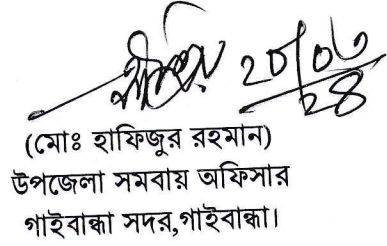 (মোঃ হাফিজুর রহমান)
উপজেলা সমবায় অফিসার
গাইবান্ধা সদর,গাইবান্ধা।